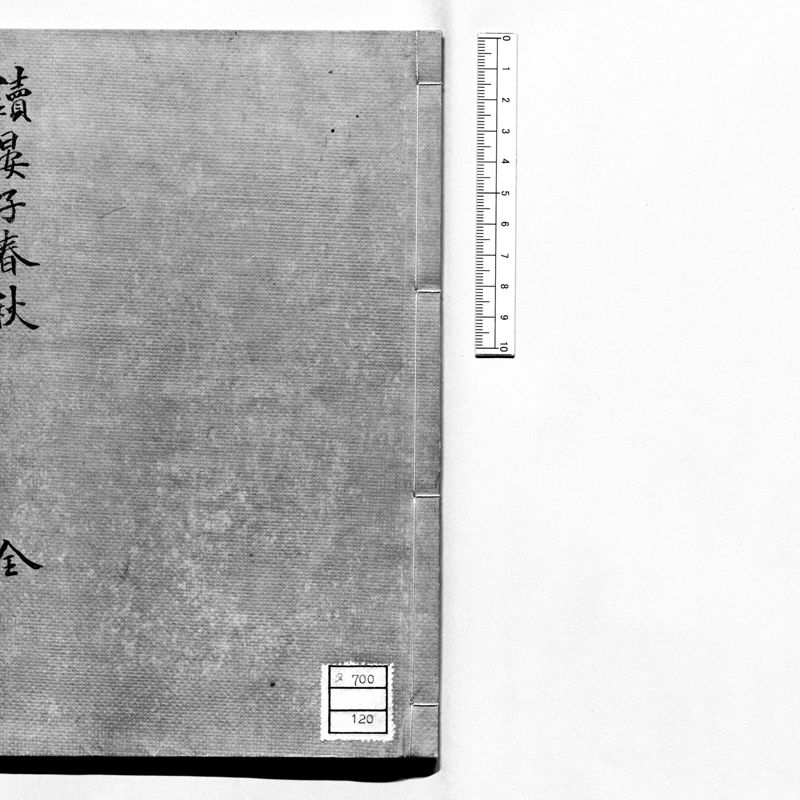 讀晏子春秋
全
700
120
0
1
2
3
4
5
6
7
8
9
10